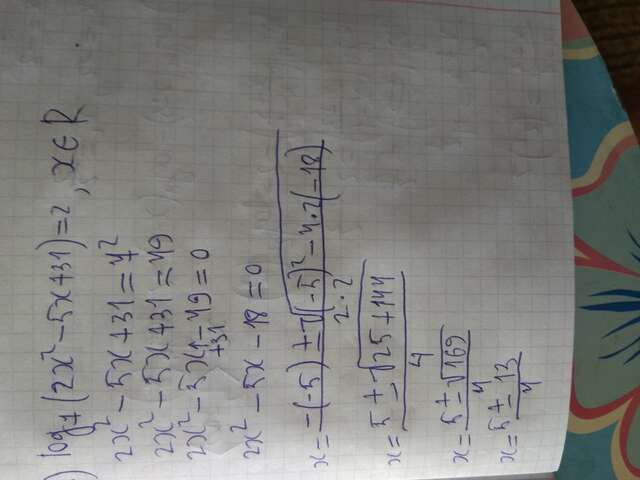 ) log₇(2x² - 5x + 31) = 2, x ∈ R
2x² - 5x + 31 = 7²
2x² - 5x + 31 = 49
2x² - 5x + 31 - 49 = 0
2x² - 5x - 18 = 0
x = (-(-5) ± √((-5)² - 4·2(-18))) / (2·2)
x = (5 ± √(25 + 144)) / 4
x = (5 ± √169) / 4
x = (5 ± 13) / 4